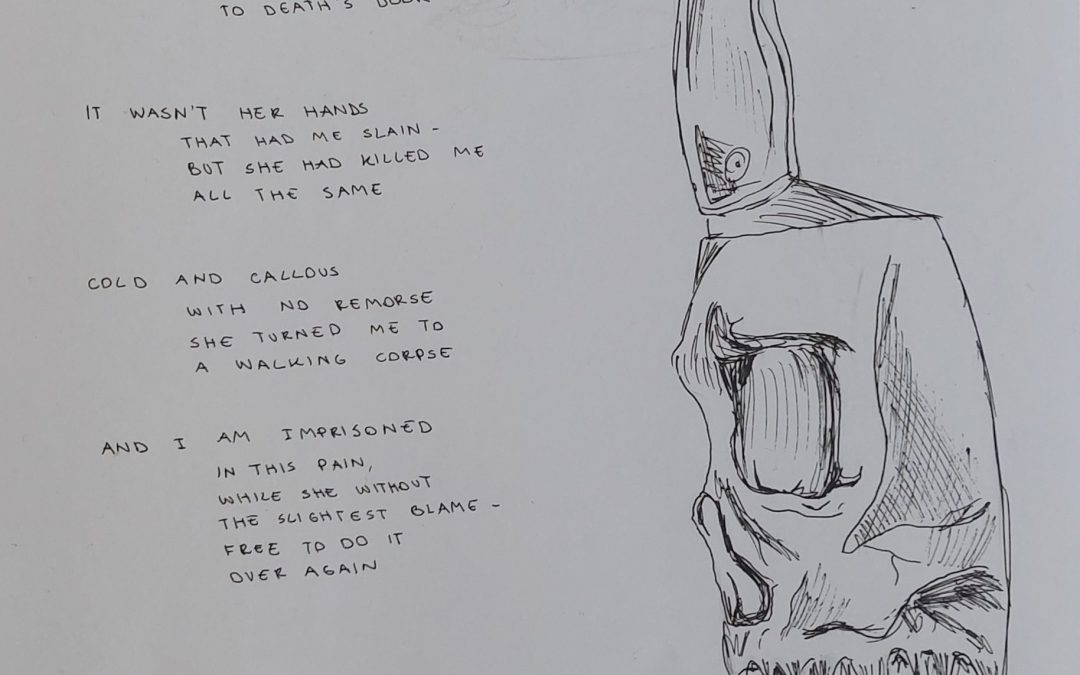 TO DEATH'S DOOR
IT WASN'T HER HANDS
THAT HAD ME SLAIN -
BUT SHE HAD KILLED ME
ALL THE SAME
COLD AND CALLOUS
WITH NO REMORSE
SHE TURNED ME TO
A WALKING CORPSE
AND I AM IMPRISONED
IN THIS PAIN,
WHILE SHE WITHOUT
THE SLIGHTEST BLAME -
FREE TO DO IT
OVER AGAIN